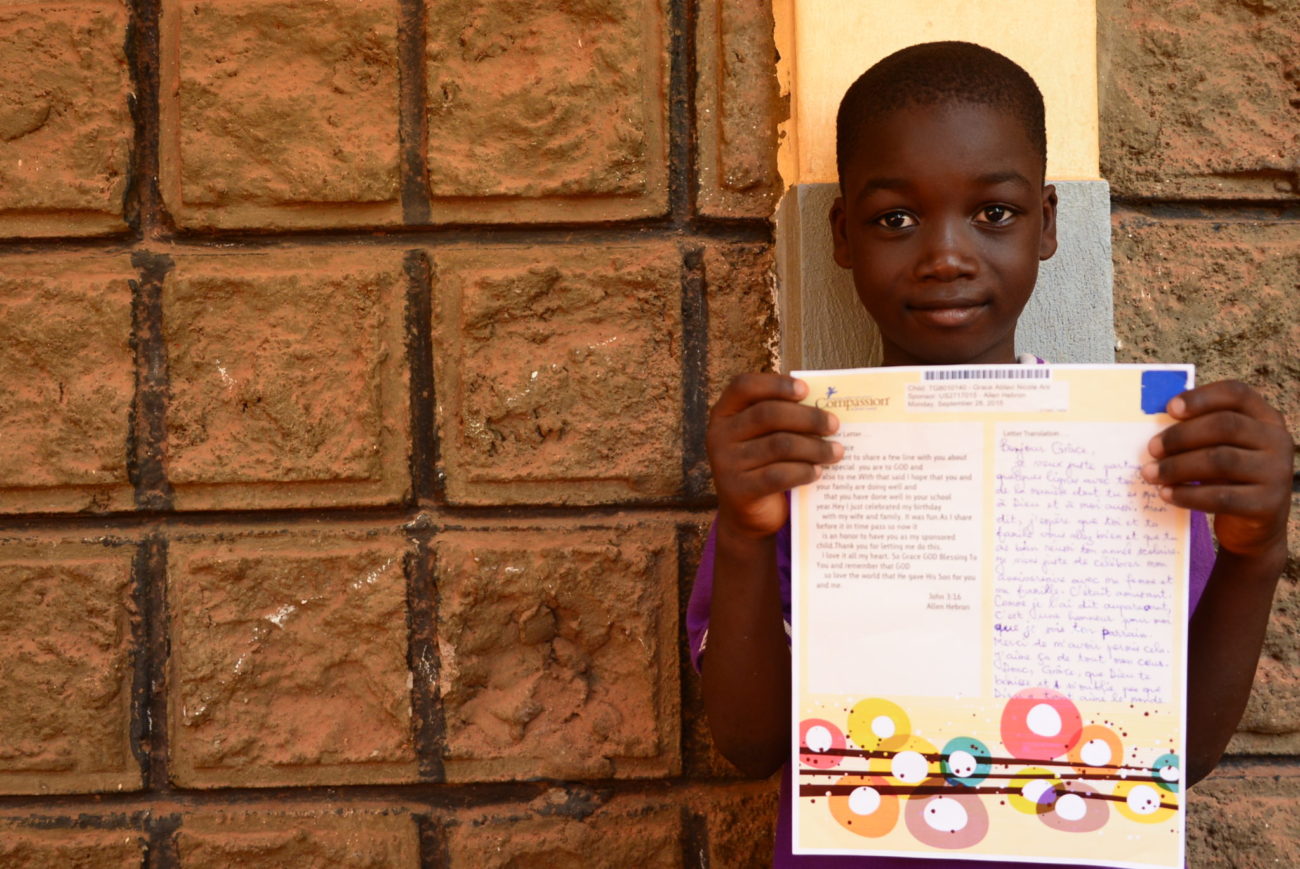 Compassion
Child: TG8010140 - Grace Ablavi Nicole Are
Sponsor: US2717015 - Allen Hebron
Monday, September 28, 2015
Letter...
want to share a few line with you about
special you are to GOD and
also to me.With that said I hope that you and
your family are doing well and
that you have done well in your school
year.Hey I just celebrated my birthday
with my wife and family. It was fun.As I share
before it in time pass so now it
is an honor to have you as my sponsored
child.Thank you for letting me do this.
I love it all my heart. So Grace GOD Blessing To
You and remember that GOD
so love the world that He gave His Son for you
and me.
John 3:16
Allen Hebron
Letter Translation...
Bonjour Grâce,
Je veux juste
quelques lignes avec toi
de la manière dont tu es
à Dieu et à moi aussi.
dit, j'espère que toi et ta
famille vous allez bien et que tu
as bien réussi ton année scolaire.
Je viens juste de célébrer mon
anniversaire avec ma femme et
ma famille. C'était amusant.
Comme je l'ai dit auparavant,
c'est une honneur pour moi
que je sois ton parrain.
Merci de m'avoir permis cela.
J'aime ça de tout mon cœur.
Donc, Grâce, que Dieu te
bénisse et n'oublie pas que
Dieu a tant aimé le monde